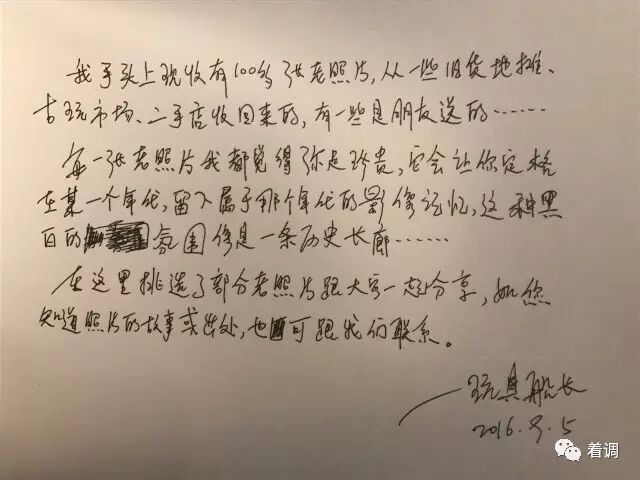 我手头上现收有100多张老照片,从一些旧货地摊、
古玩市场、二手店收回来的,有一些是朋友送的……
每一张老照片我都觉得弥足珍贵,它会让你定格
在某一个年代,留下属于那个年代的影像记忆,这种黑
白的氛围像是一条历史长廊……
在这里挑选了部分老照片跟大家一起分享,如您
知道照片的故事或出处,也可跟我们联系。
——玩具船长
2016.9.5
着调